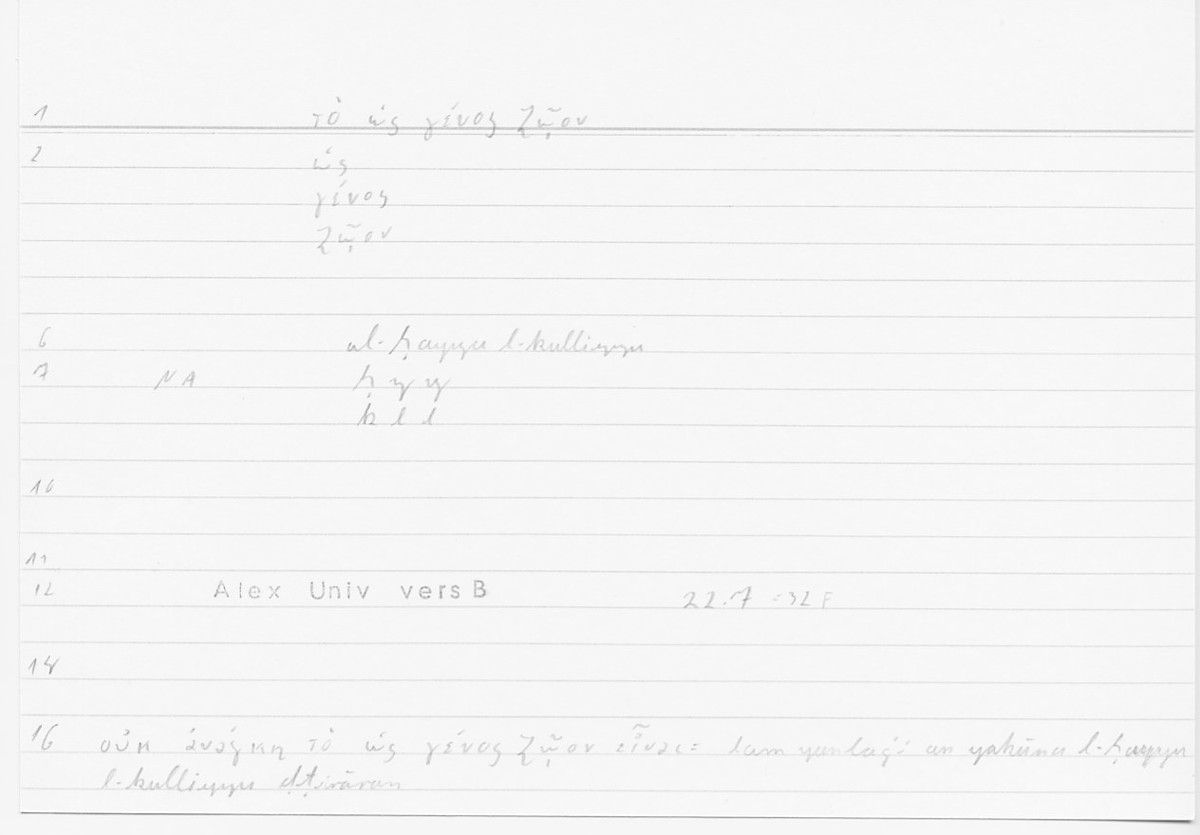 1 τὸ ὡς γένος ζῷον
2 ὡς
γένος
ζῷον
6 al-ḥayyu l-kulliyyu
7 NA ḥ y y
k l l
10
11
12 Alex Univ vers B 22.7 =32 F
14
16 οὐκ ἀνάγκη τὸ ὡς γένος ζῷον εἶναι= lam yanbaġi an yakūna l-ḥayyu
l-kulliyyu ḍṭirāran